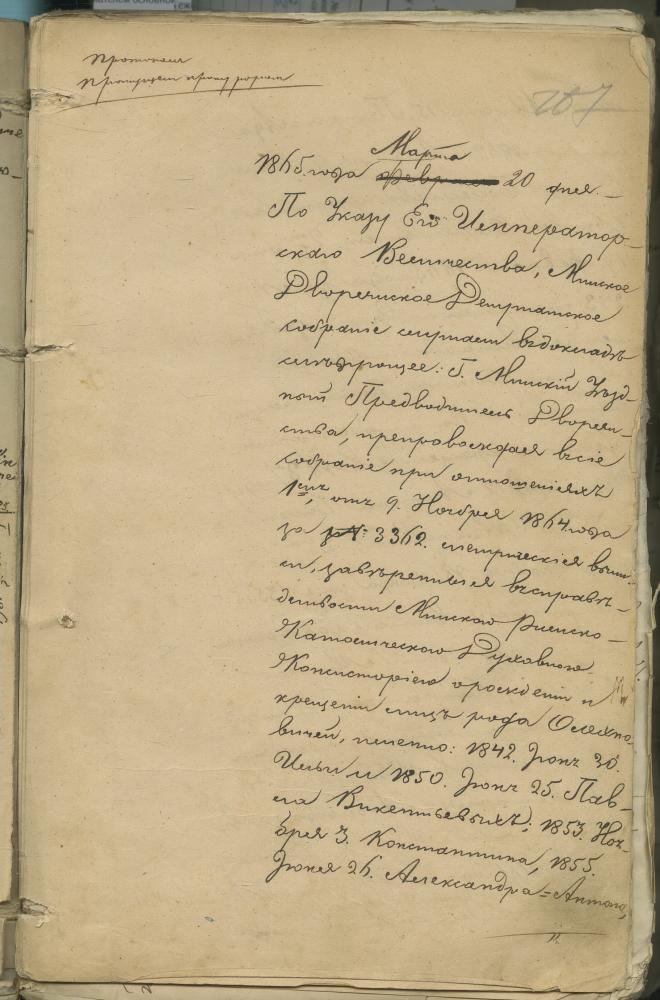 Протоколъ
187
Марта
1865 года февраля 20 дня.
По Указу Его Император-
скаго Величества, Минское
Дворянское Депутатское
собраніе слушали вьдокладъ
слѣдующее: Г. Минскій Уѣзд-
ный Предводитель Дворян-
ства, препровождая въсіе
собраніе при отношеніяхъ
1му, отъ 9. Ноября 1864 года
за № 3362. метрическія выпи-
си, завѣренныя въсправѣ-
дливости Минскою Римско-
Католическою Духовною
Консисторіею орожденіи и
крещеніи лицъ рода Олехно-
вичей, именно: 1842. Іюня 30.
Ильи и 1850. Іюня 25. Пав-
ла Викентьевыхъ; 1853. Ноя-
бря 3. Константина, 1855.
Іюня 26. Александра-Антона,